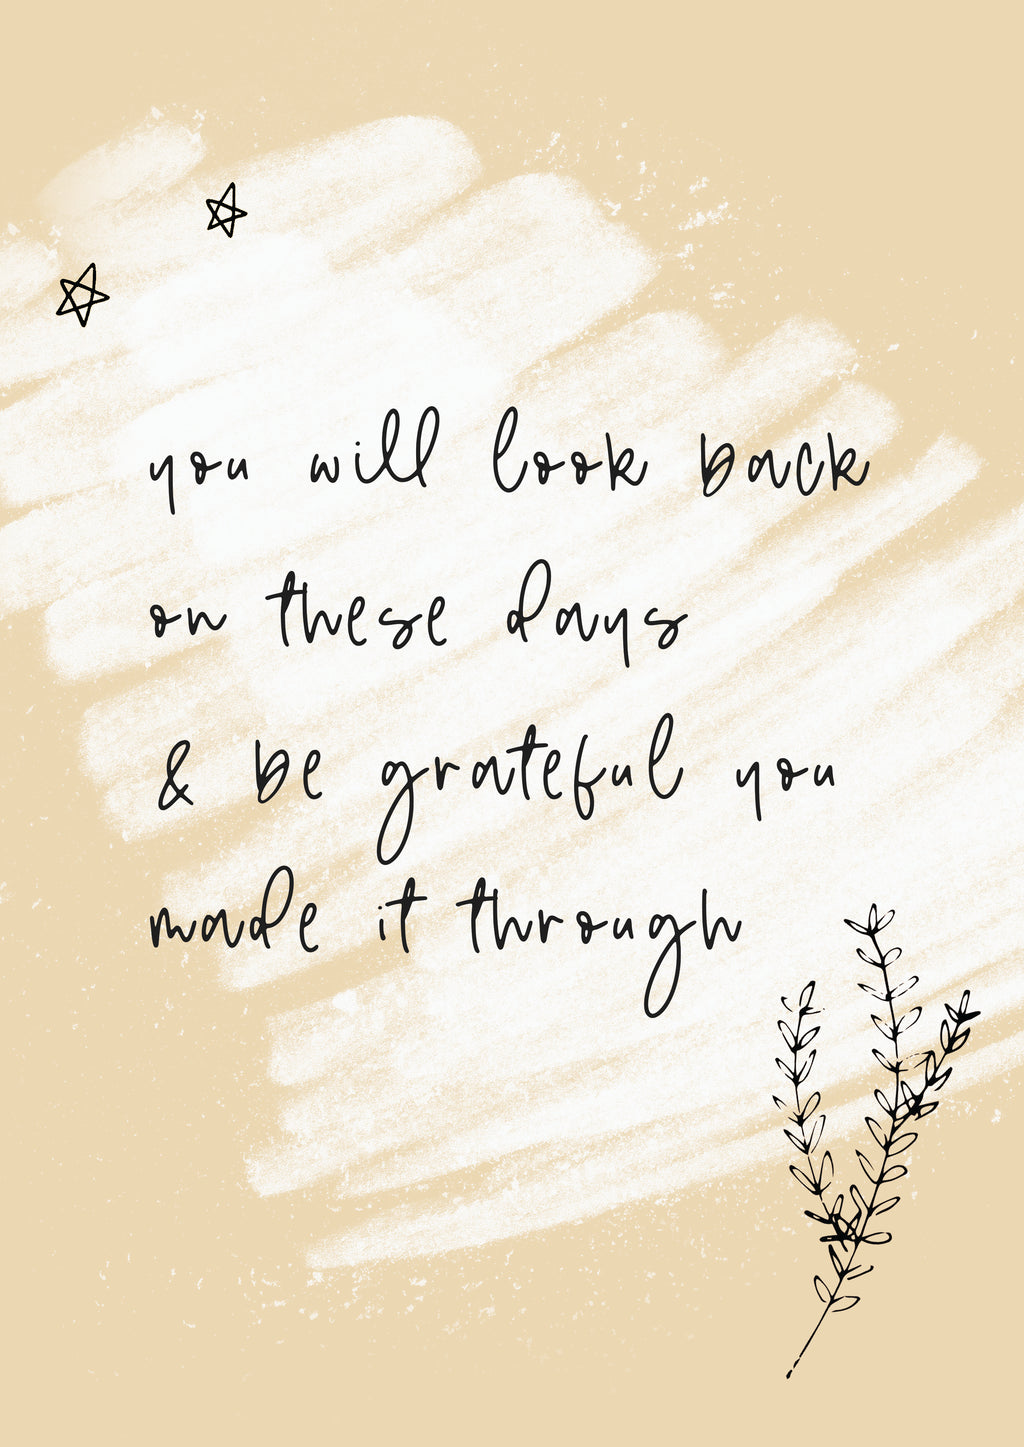 you will look back
on these days
& be grateful you
made it through